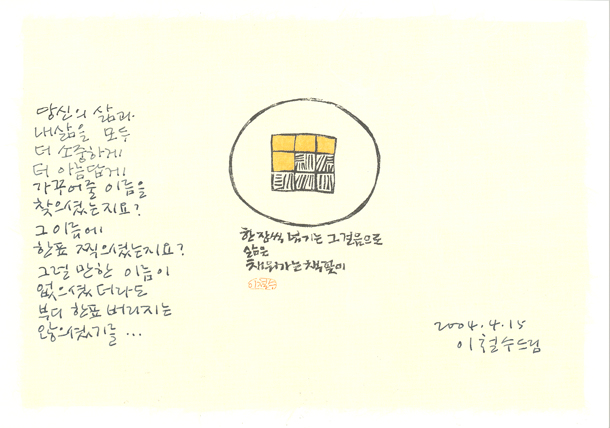 당신의 삶과
내삶을 모두
더 소중하게
더 아름답게
가꾸어줄 이름을
찾으셨는지요?
그 이름에
한표 찍으셨는지요?
그럴 만한 이름이
없으셨더라도
부디 한표 버리지는
않으셨기를 ...
한 장씩 넘기는 그 걸음으로
삶은
채워가는 책꽂이
이철수
2004.4.15
이철수드림